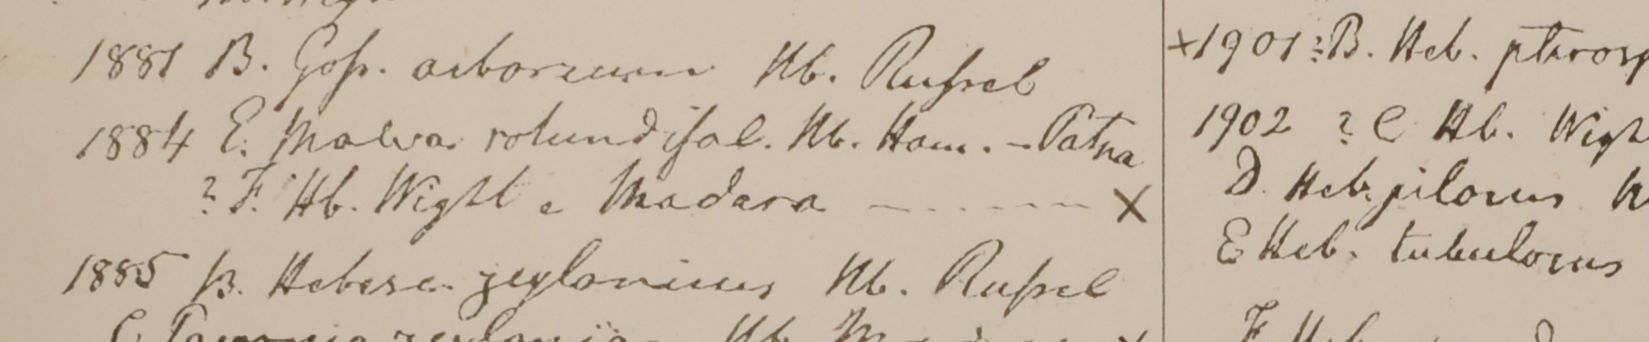 1881 B. Goss. arboreum Hb. Russel
1884 E. Malva rotundifol. Hb. Ham. - Patna
? F. Hb. Wight e Madara - - - - - X
1885 B. Hebesc. zeylonicus Hb. Russel
C Pavonia zeylonica Hb.
X 1901 ? B. Heb. pterosp
1902 ? C Hb. Wight
D. Heb. pilosus
E Heb. tubulosus
F Heb.